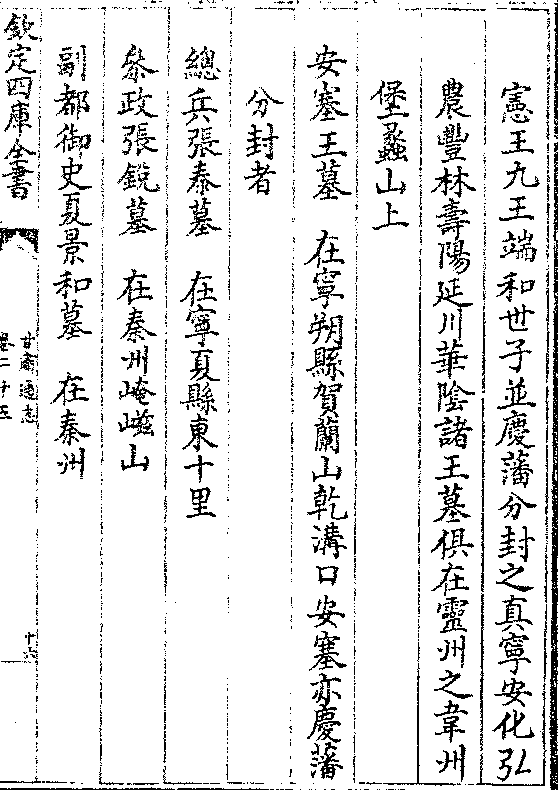 憲王九王端和世子並慶藩分封之真寧安化弘
農豐林壽陽延川華陰諸王墓俱在靈州之韋州
堡蠡山上
安塞王墓　在寧朔縣賀蘭山乾溝口安塞亦慶藩
分封者
總兵張泰墓　在寧夏縣東十里
叅政張銳墓　在秦州崦嵫山
副都御史夏景和墓　在秦州
欽定四庫全書
甘肅通志
卷二十五
十六